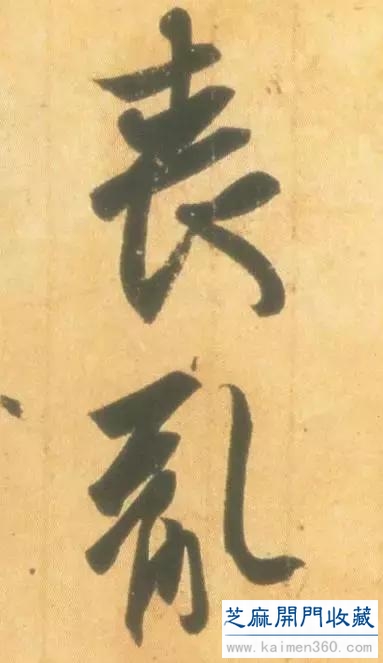 喪亂
芝麻開門收藏
www.kaimen360.com